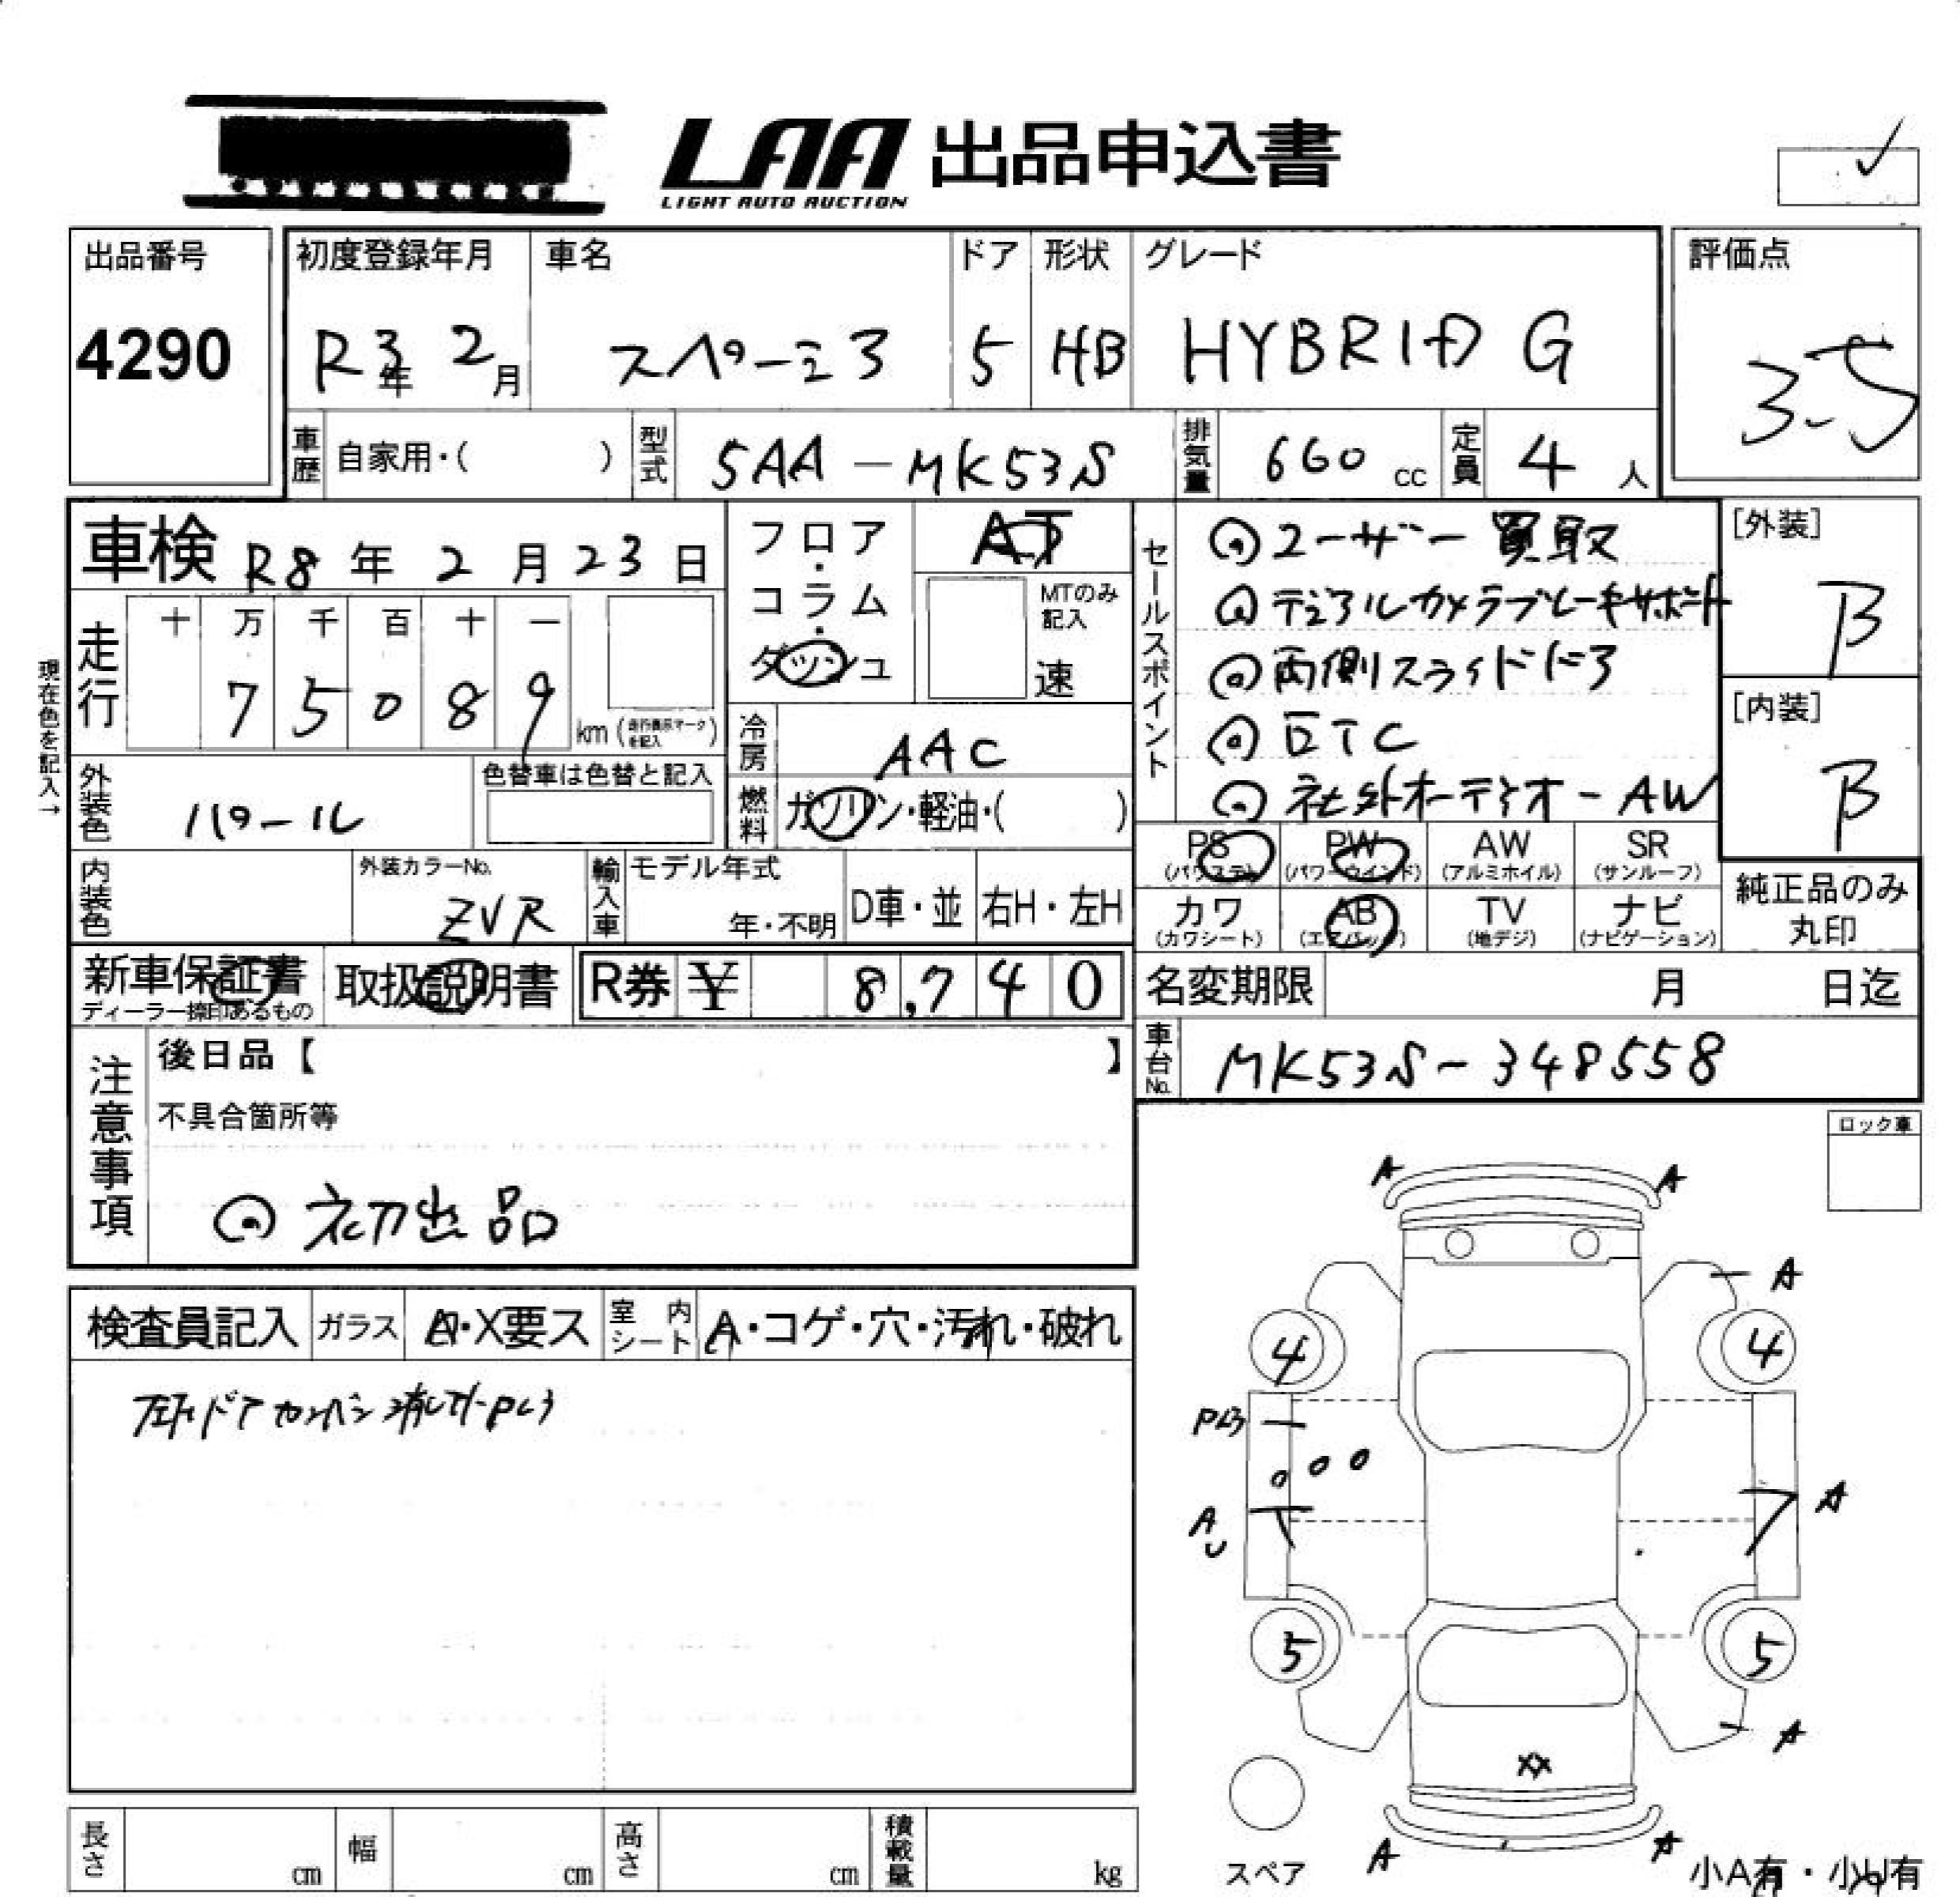 LAA 出品申込書
LIGHT AUTO AUCTION
出品番号
4290
初度登録年月
R3年 2月
車名
スペーシア
ドア
5
形状
HB
グレード
HYBRID G
評価点
3.5
車歴 自家用・( )
型式 5AA-MK53S
排気量 660 cc
定員 4 人
車検 R8年 2月 23日
現在色を記入→
走行 十 万 千 百 十 一
7 5 0 8 9 km (走行表示マークを記入)
フロア・コラム・ダッシュ
AT
MTのみ記入
速
冷房 AAC
燃料 ガソリン・軽油・( )
外装色 パール
色替車は色替と記入
内装色
外装カラーNo. ZVR
輸入車 モデル年式 年・不明 D車・並 右H・左H
セールスポイント
◎ユーザー買取
◎デュアルカメラブレーキサポート
◎両側スライドドア
◎ETC
◎社外オーディオ-AW
[外装]
B
[内装]
B
PS (パワステ) PW (パワーウインド) AW (アルミホイル) SR (サンルーフ)
カワ (カワシート) AB (エアバッグ) TV (地デジ) ナビ (ナビゲーション)
純正品のみ丸印
新車保証書
ディーラー捺印あるもの
取扱説明書
R券 ¥ 8,740
名変期限 月 日迄
車台No. MK53S-348558
注意事項
後日品【 】
不具合箇所等
◎初出品
ロック車
検査員記入 ガラス A・X要ス 室内シート A・コゲ・穴・汚れ・破れ
ドア カンバン消し
A A
A
4 4
A
A
U
5 5
A
XX
A A
スペア
小A有・小U有
長さ cm 幅 cm 高さ cm 積載量 kg